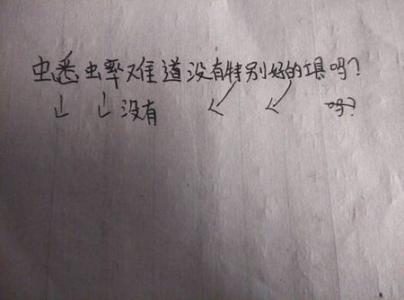 蟋蟀难道没有特别好的填吗?
↓ ↓没有 ↙ ↙ 吗?